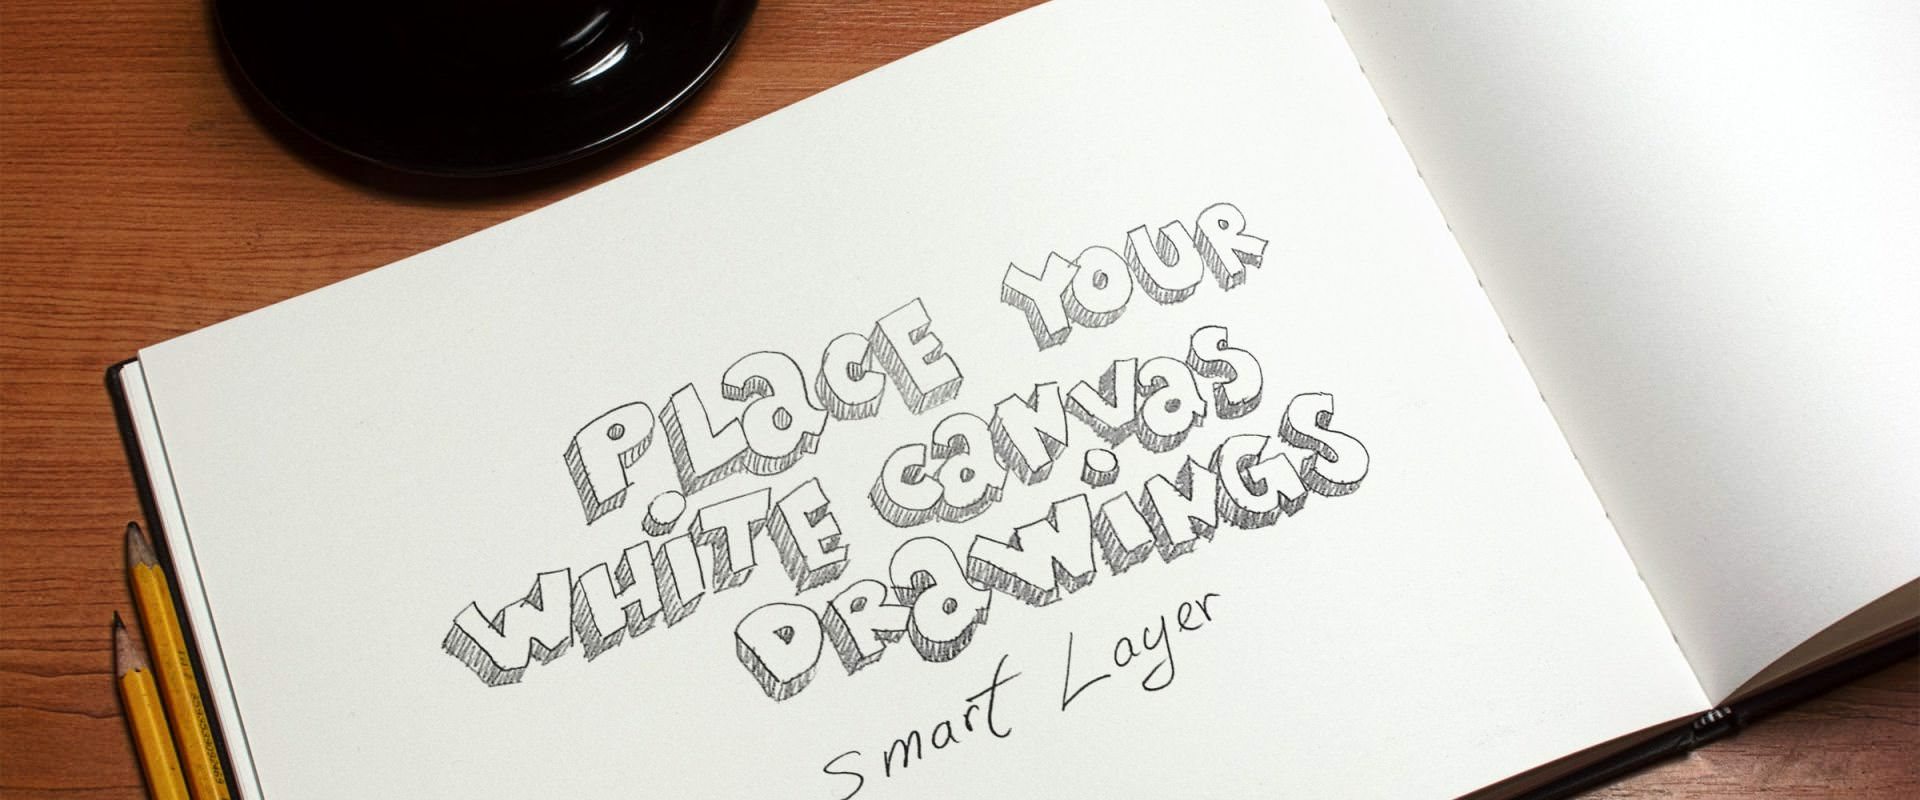 PLaCE YOUR
WHiTE CaNVaS
DRaWiNGS
Smart Layer